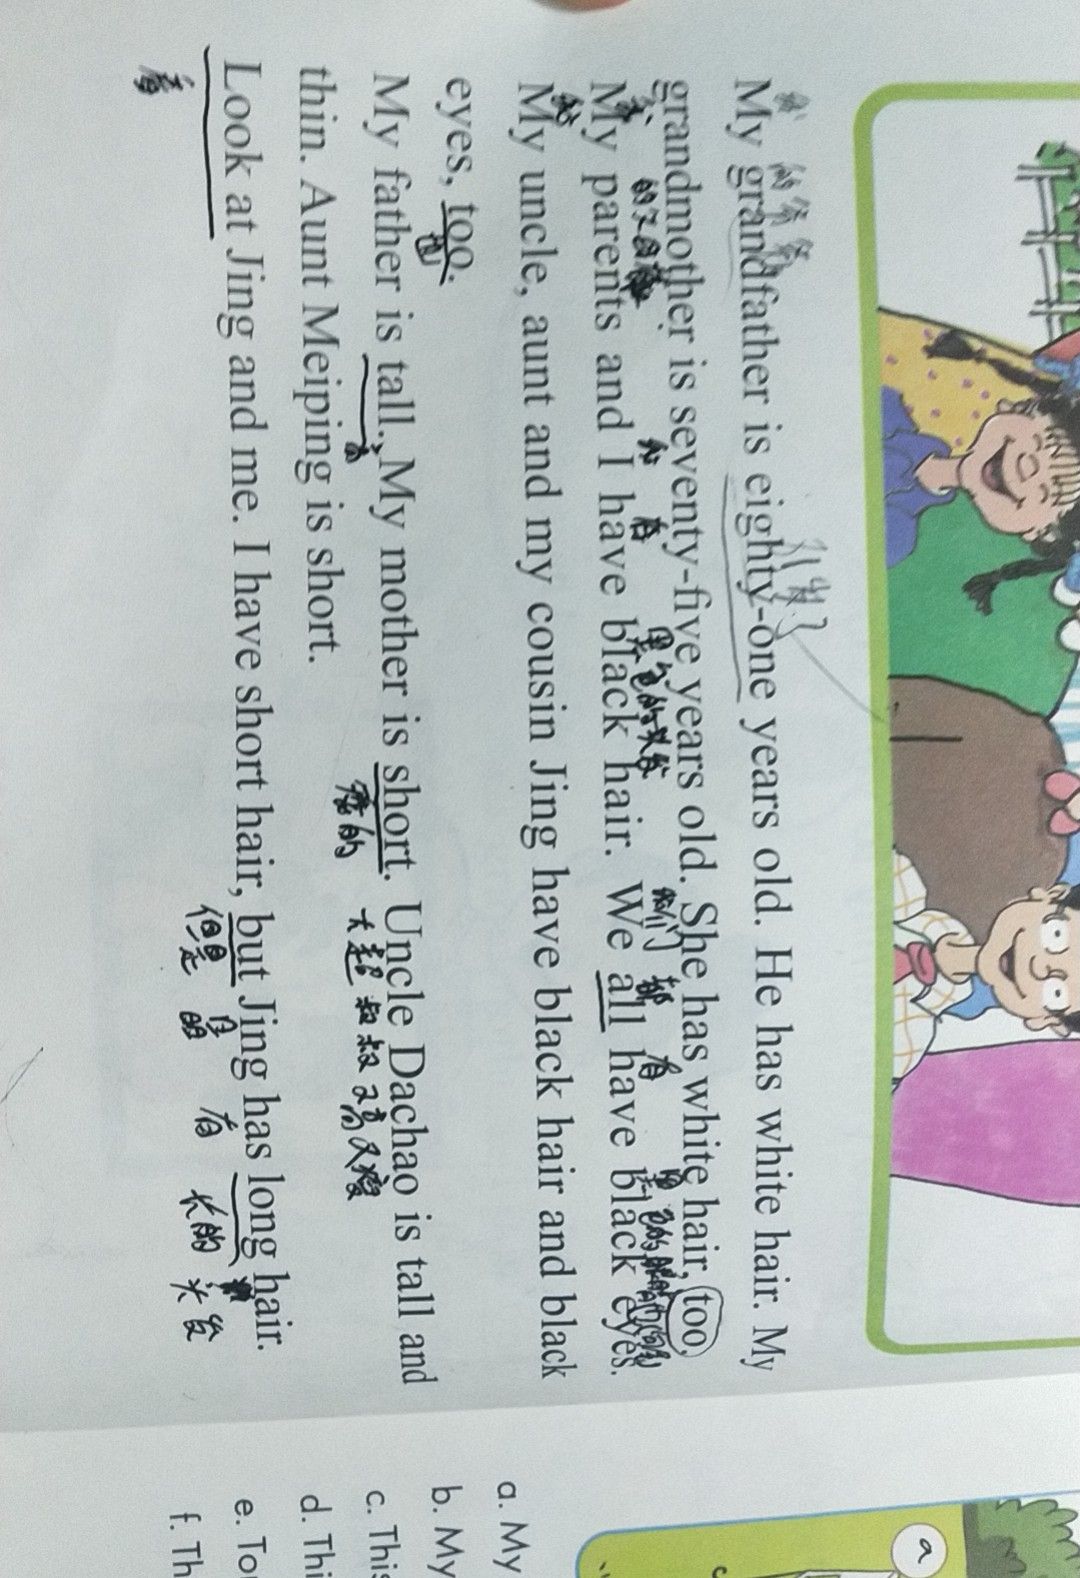 我 的爷爷
My grandfather is eighty-one years old. He has white hair. My
grandmother is seventy-five years old. She has white hair, too.
我 有 黑色的头发 我们 都 有
My parents and I have black hair. We all have black eyes.
My uncle, aunt and my cousin Jing have black hair and black
eyes, too.
也
My father is tall. My mother is short. Uncle Dachao is tall and
高 矮的 大超 叔叔 又高又瘦
thin. Aunt Meiping is short.
Look at Jing and me. I have short hair, but Jing has long hair.
看 但是 晶 有 长的 头发
a
a. My
b. My
c. This
d. Thi
e. To
f. Th